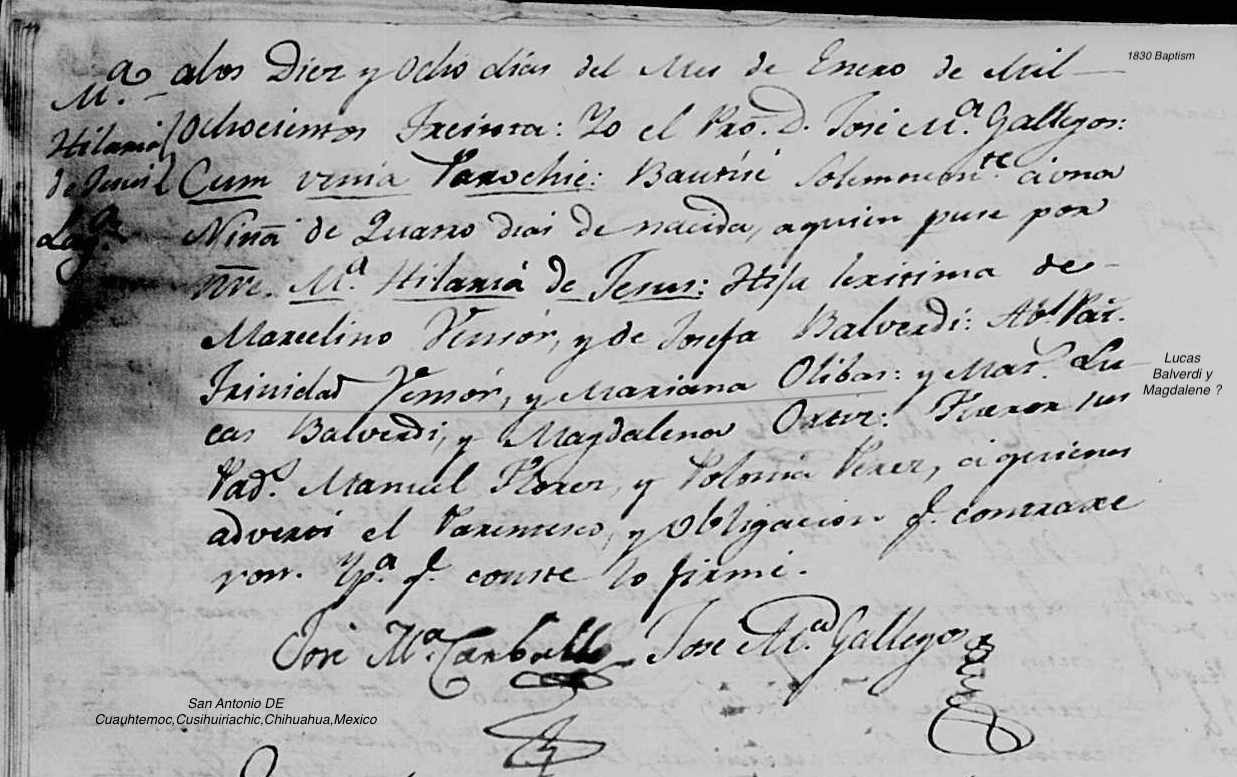 1830 Baptism
M.ª
Hilaria
de Jesus
Lag.ª
alos Diez y Ocho dias del Mes de Enero de Mil
Ochocientos Treinta: Yo el Pro. D. José M.ª Gallegos:
Cum venia Parochie: Bautisé Solemnem.te á vna
Niña de Quatro dias de nacida, aquien puse por
nre. M.ª Hilaria de Jesus: Hija lexitima de
Marcelino Tensór, y de Josefa Balverdi: Ab.s Pat.
Trinidad Tensór, y Mariana Olibas: y Mat.s Lu
cas Balverdi, y Magdalena Ortiz: Fueron sus
Pad.s Manuel Flores, y Polonia Perez, á quienes
adverti el Parentesco, y Obligacion q.e contraxe
ron. Yp.a q.e conste lo firmé.
José M.ª Carballo José M.ª Gallegos
Lucas
Balverdi y
Magdalene ?
San Antonio DE
Cuauhtemoc,Cusihuiriachic,Chihuahua,Mexico